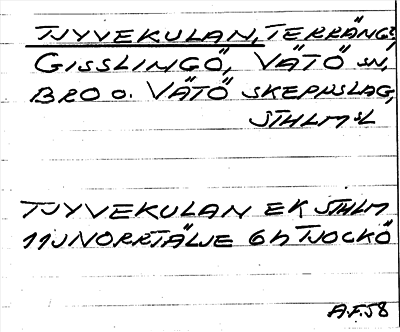 TJYVEKULAN, TERRÄNG,
GISSLINGÖ, VÄTÖ SN,
BRO O. VÄTÖ SKEPPSLAG,
STHLMS L
TJYVEKULAN EK STHLM
11J NORRTÄLJE 6h TJOCKÖ
A.F. 58